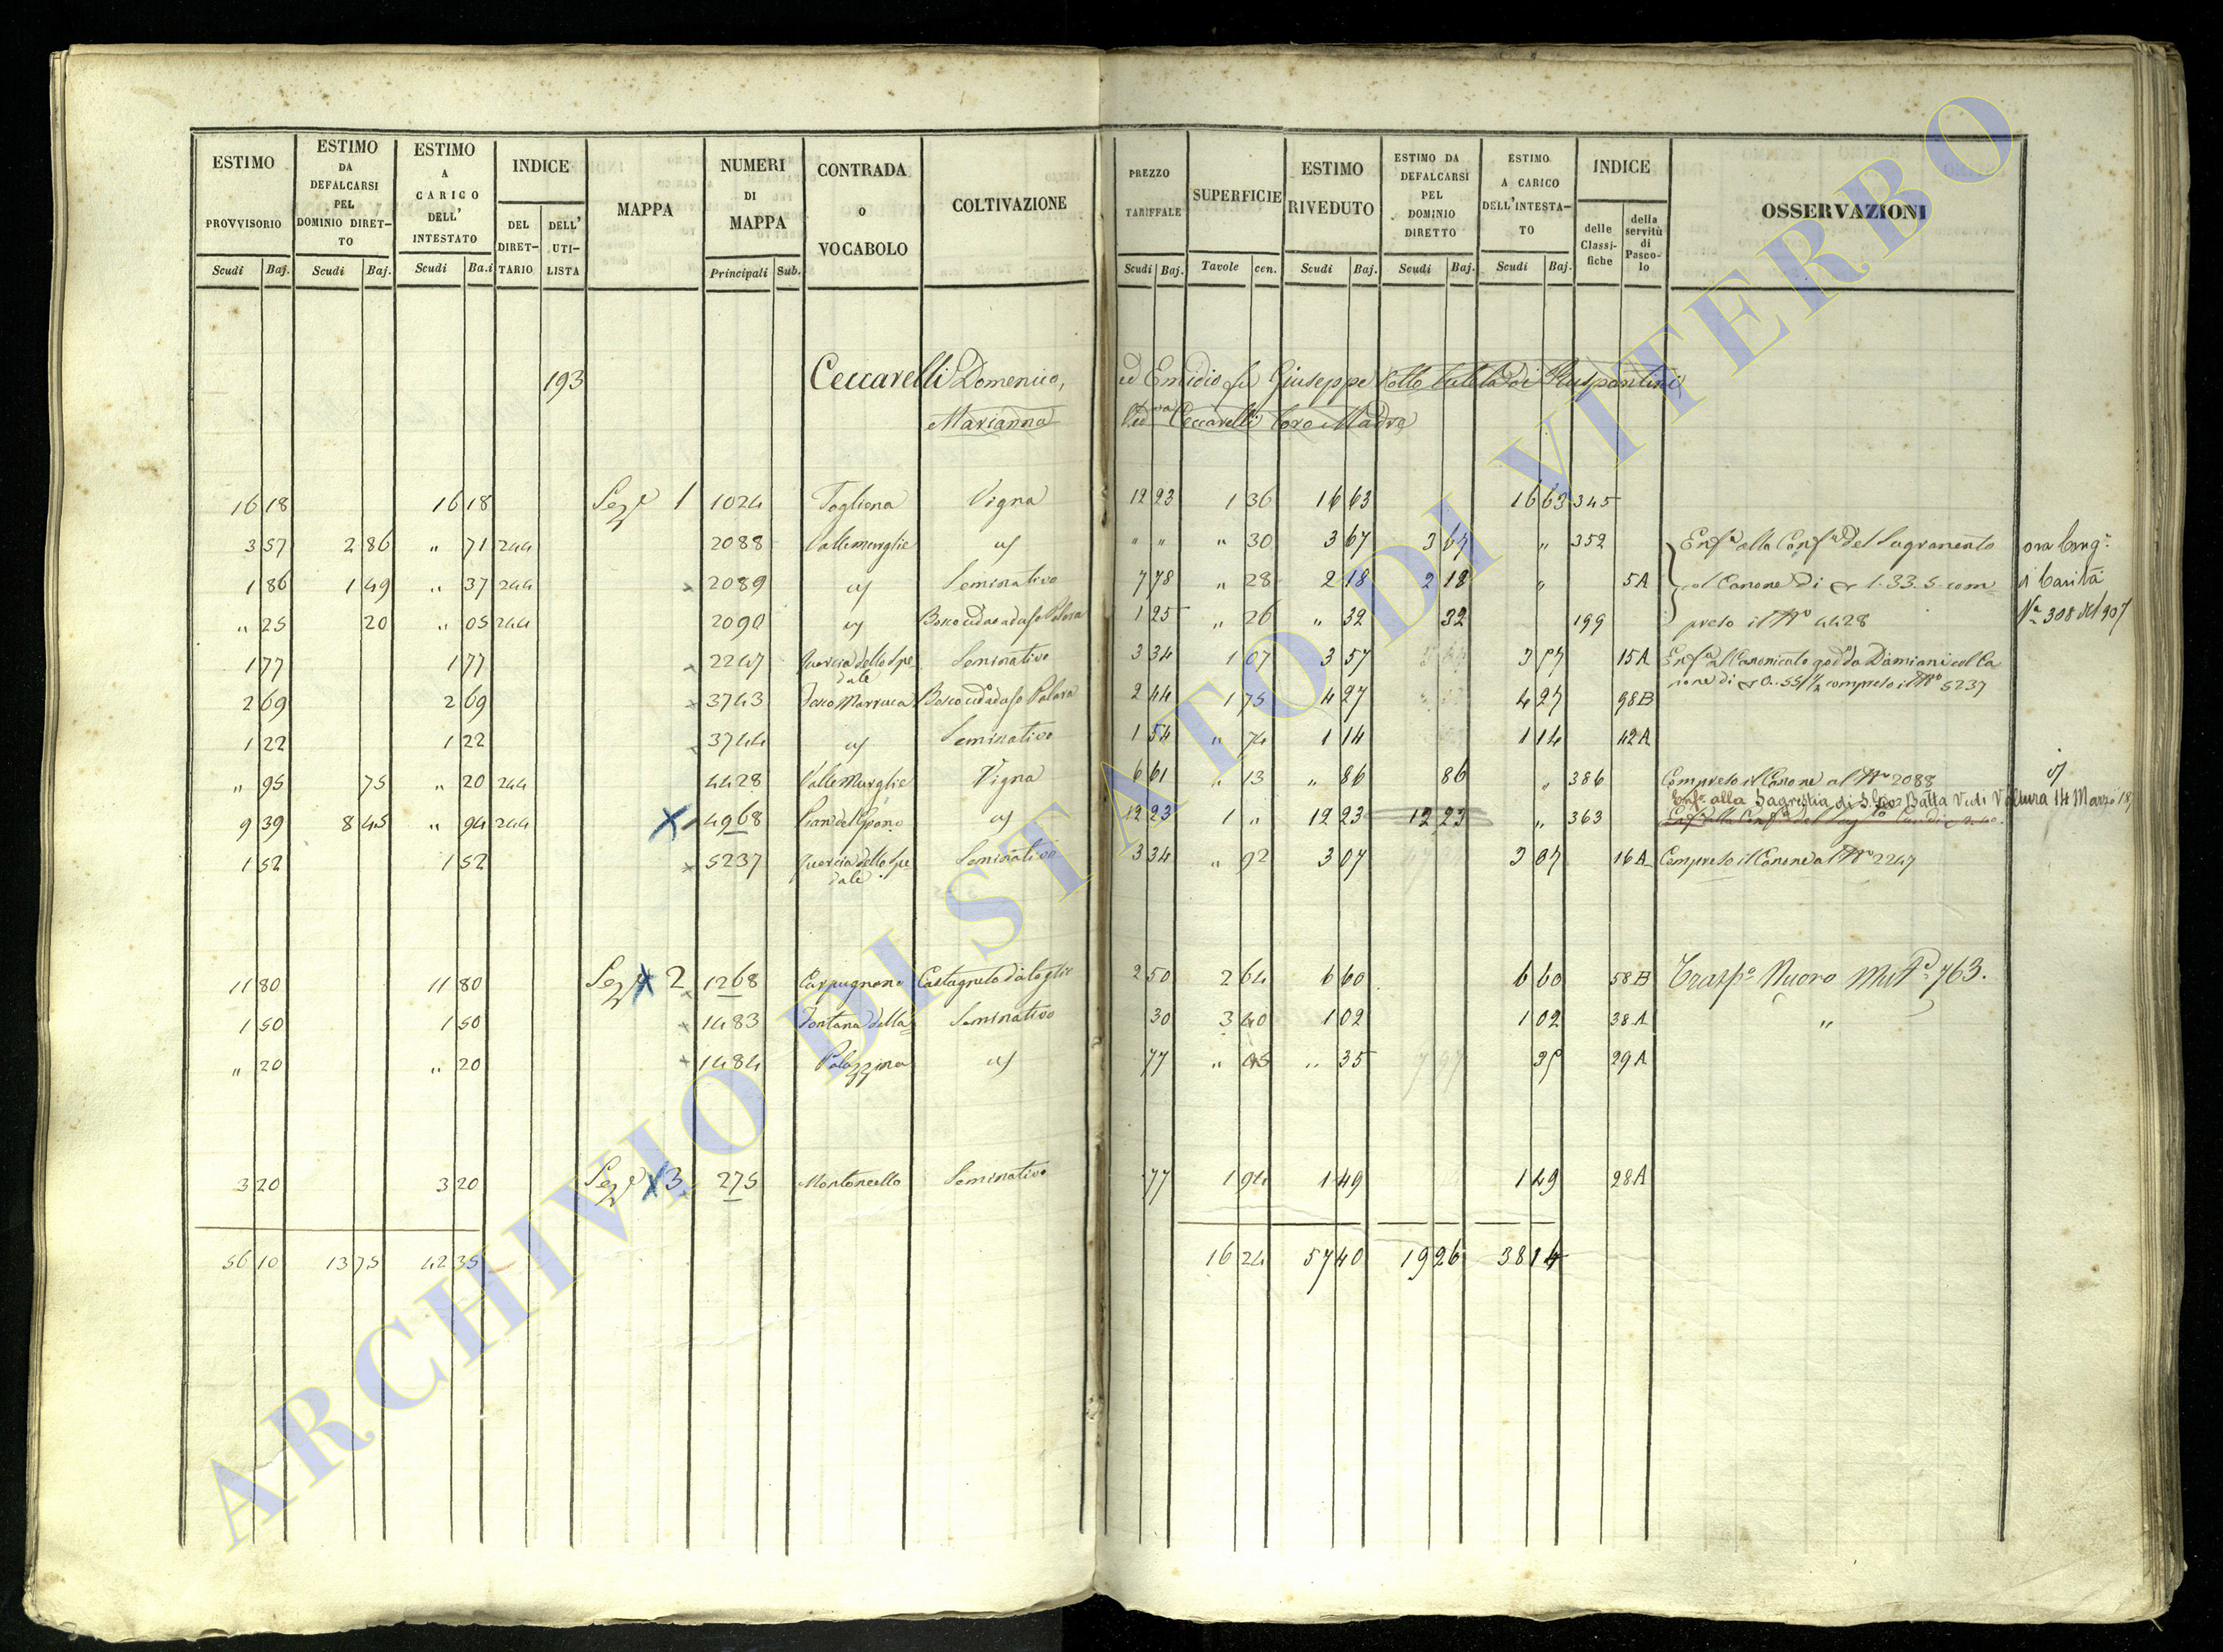 ESTIMO PROVVISORIO Scudi Baj.
ESTIMO DA DEFALCARSI PEL DOMINIO DIRETTO Scudi Baj.
ESTIMO A CARICO DELL' INTESTATO Scudi Ba.i
INDICE DEL DIRETTARIO DELL' UTILISTA
MAPPA
NUMERI DI MAPPA Principali Sub.
CONTRADA O VOCABOLO
COLTIVAZIONE
PREZZO TARIFFALE Scudi Baj.
SUPERFICIE Tavole cen.
ESTIMO RIVEDUTO Scudi Baj.
ESTIMO DA DEFALCARSI PEL DOMINIO DIRETTO Scudi Baj.
ESTIMO A CARICO DELL'INTESTATO Scudi Baj.
INDICE delle Classifiche della servitù di Pascolo
OSSERVAZIONI
193 Ceccarelli Domenico, ed Emidio fu Giuseppe sotto tutela di Ruspantini
Marianna Ved.va Ceccarelli loro Madre
16 18 16 18 Sez.e 1 1024 Togliena Vigna 12 23 1 36 16 63 16 63 345
3 57 2 86 " 71 244 2088 Valle Murglie " " " 30 3 67 3 67 " 352 Enf.a alla Conf.a del Sagramento ora Cong.e
1 86 1 49 " 37 244 2089 Seminativo 7 78 " 28 2 18 2 18 " 5A col Canone di 1.33.5 com- di Carità
" 25 20 " 05 244 2090 1 25 " 26 " 32 32 199 preso il N.o 4428 N.a 308 del 907
1 77 1 77 2247 Quercia dello Spedale Seminativo 3 34 1 07 3 57 3 57 15A Damiani col Ca
2 69 2 69 3743 Fosco Marruca 2 44 1 75 4 27 4 27 98B none di compreso il N.o 5237
1 22 1 22 3744 Seminativo 1 54 " 74 1 14 1 14 42A
" 95 75 " 20 244 4428 Valle Murglie Vigna 6 61 " 13 " 86 86 " 386 Compreso il Canone al N.o 2088
Enf.a alla Sagrestia di S. Gio: Batta Vedi Voltura 14 Marzo 18
9 39 8 45 " 94 244 4968 12 23 1 " 12 23 12 23 " 363
1 52 1 52 5237 Quercia dello Spedale Seminativo 3 34 " 92 3 07 3 07 16A Compreso il Canone al N.o 2247
11 80 11 80 Sez.e 2 1268 Carpugnone Castagneto da taglio 2 50 2 64 6 60 6 60 58B Trasp.o Nuovo 763.
1 50 1 50 1483 Fontana della Seminativo 30 3 40 1 02 1 02 38A "
" 20 " 20 1484 Palazzina 77 " " 35 35 29A
3 20 3 20 Sez.e 3 275 Montoncello Seminativo 77 1 94 1 49 1 49 28A
56 10 13 75 42 35 16 24 57 40 19 26 38 14
ARCHIVIO DI STATO DI VITERBO